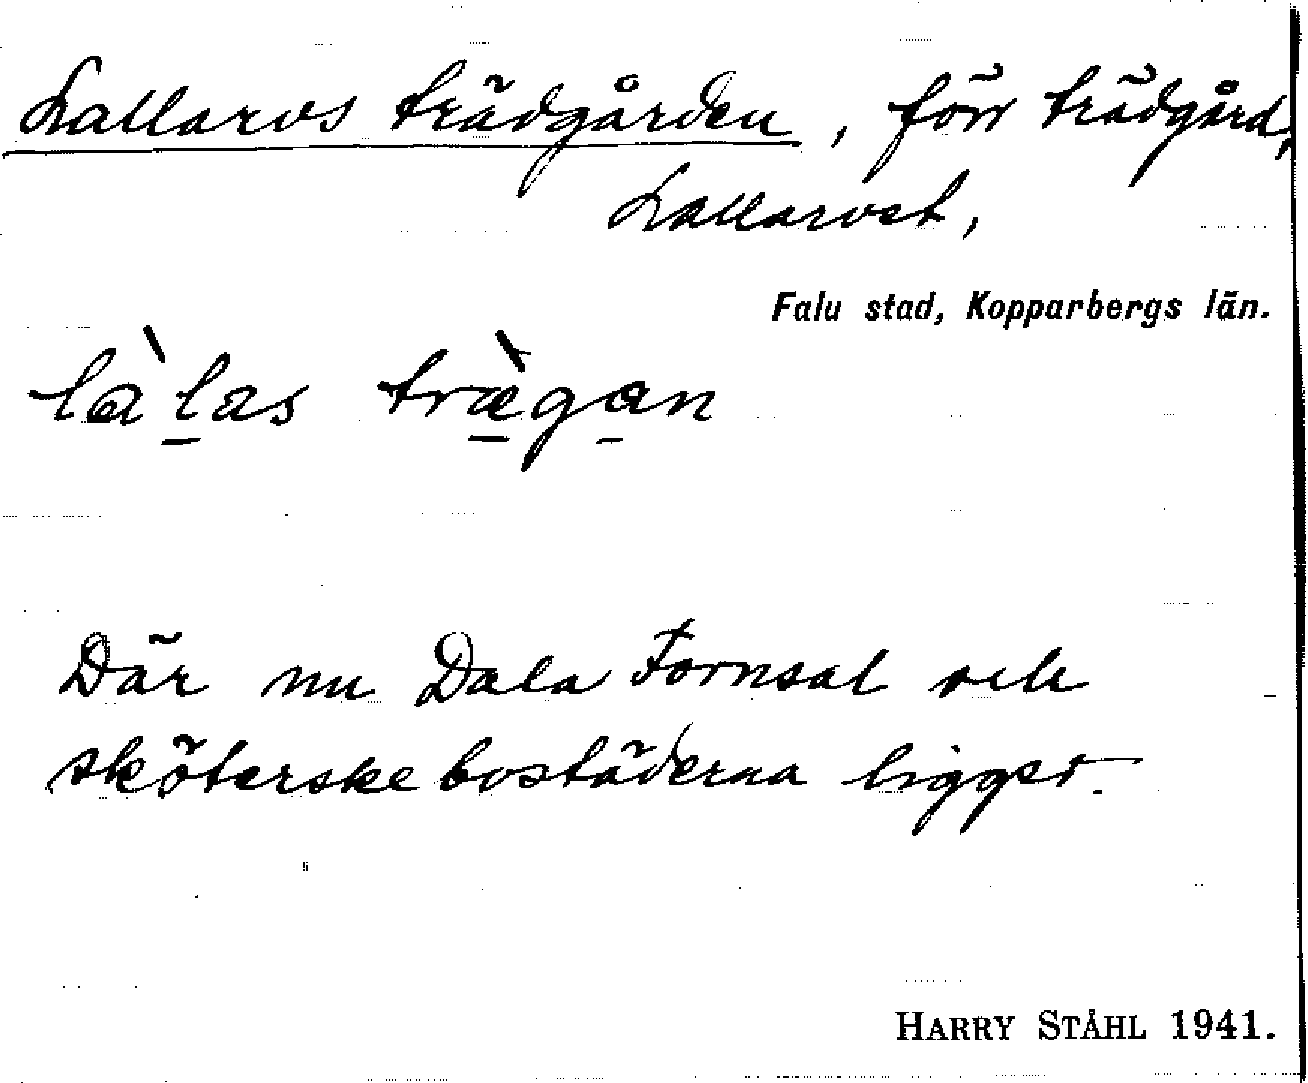 Lallarvs trädgården, förr trädgård,
Lallarvet,
Falu stad, Kopparbergs län.
là̱las træ̱̀ga̱n
Där nu Dala Fornsal och
sköterskebostäderna ligger.
HARRY STÅHL 1941.